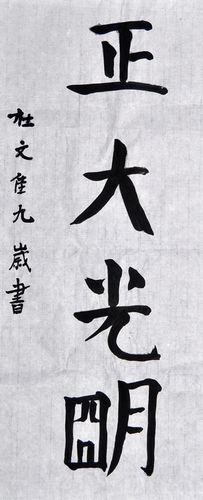 正大光朙
杜文佳九歲書